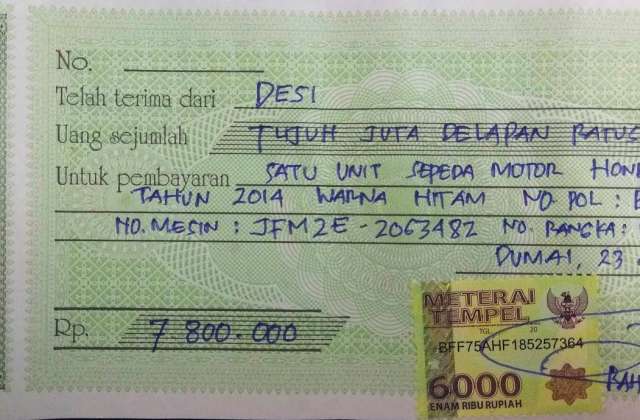 No.
Telah terima dari DESI
Uang sejumlah TUJUH JUTA DELAPAN RATUS
Untuk pembayaran SATU UNIT SEPEDA MOTOR HON
TAHUN 2014 WARNA HITAM NO. POL :
NO. MESIN : JFM2E - 2063482 NO. RANGKA :
DUMAI, 23
METERAI
TEMPEL
TGL 20
BFF75AHF185257364
Rp. 7 800.000
6000
ENAM RIBU RUPIAH
BAH